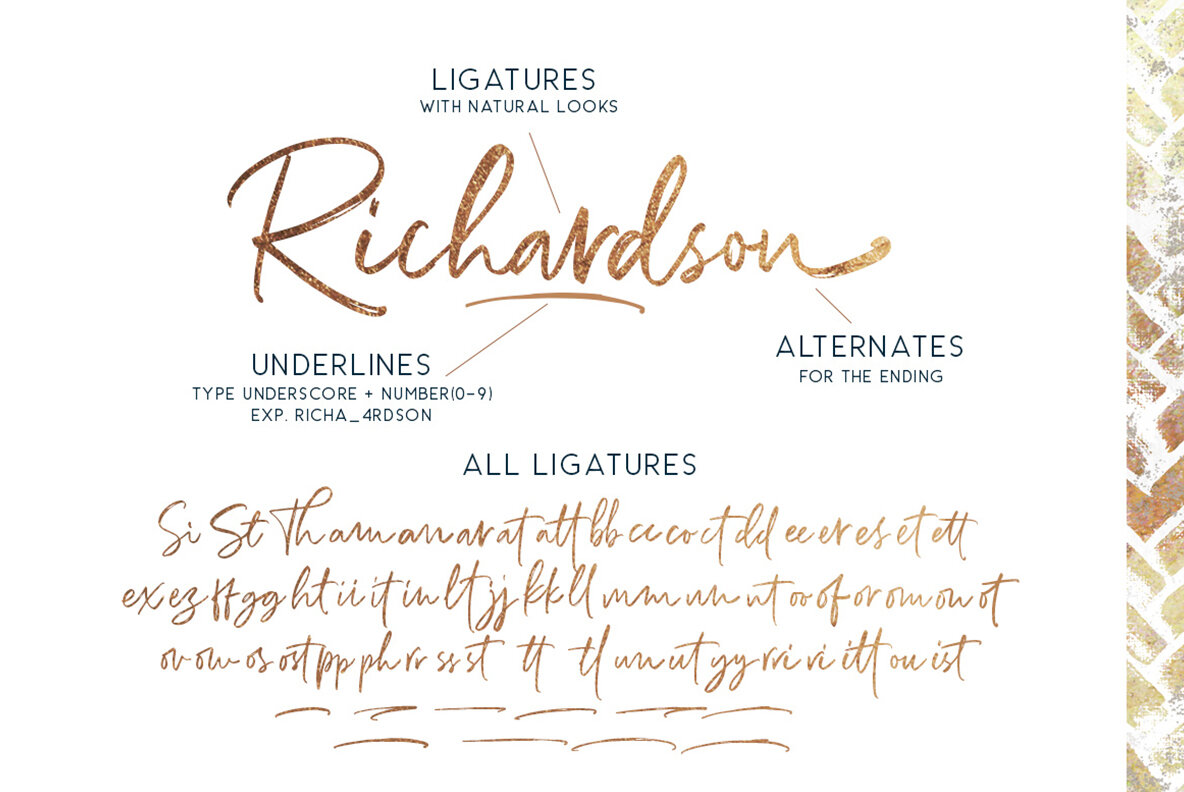 LIGATURES
WITH NATURAL LOOKS
Richardson
UNDERLINES
TYPE UNDERSCORE + NUMBER(0-9)
EXP. RICHA_4RDSON
ALTERNATES
FOR THE ENDING
ALL LIGATURES
Si St Th am an ar at att bb cc co ct dd ee er es et ett
ex ez ff gg ht ii it in lt jj kk ll mm nn nt oo of or om on ot
ov ow os ost pp ph rr ss st tt tl un ut yy rri ri itt ou ist